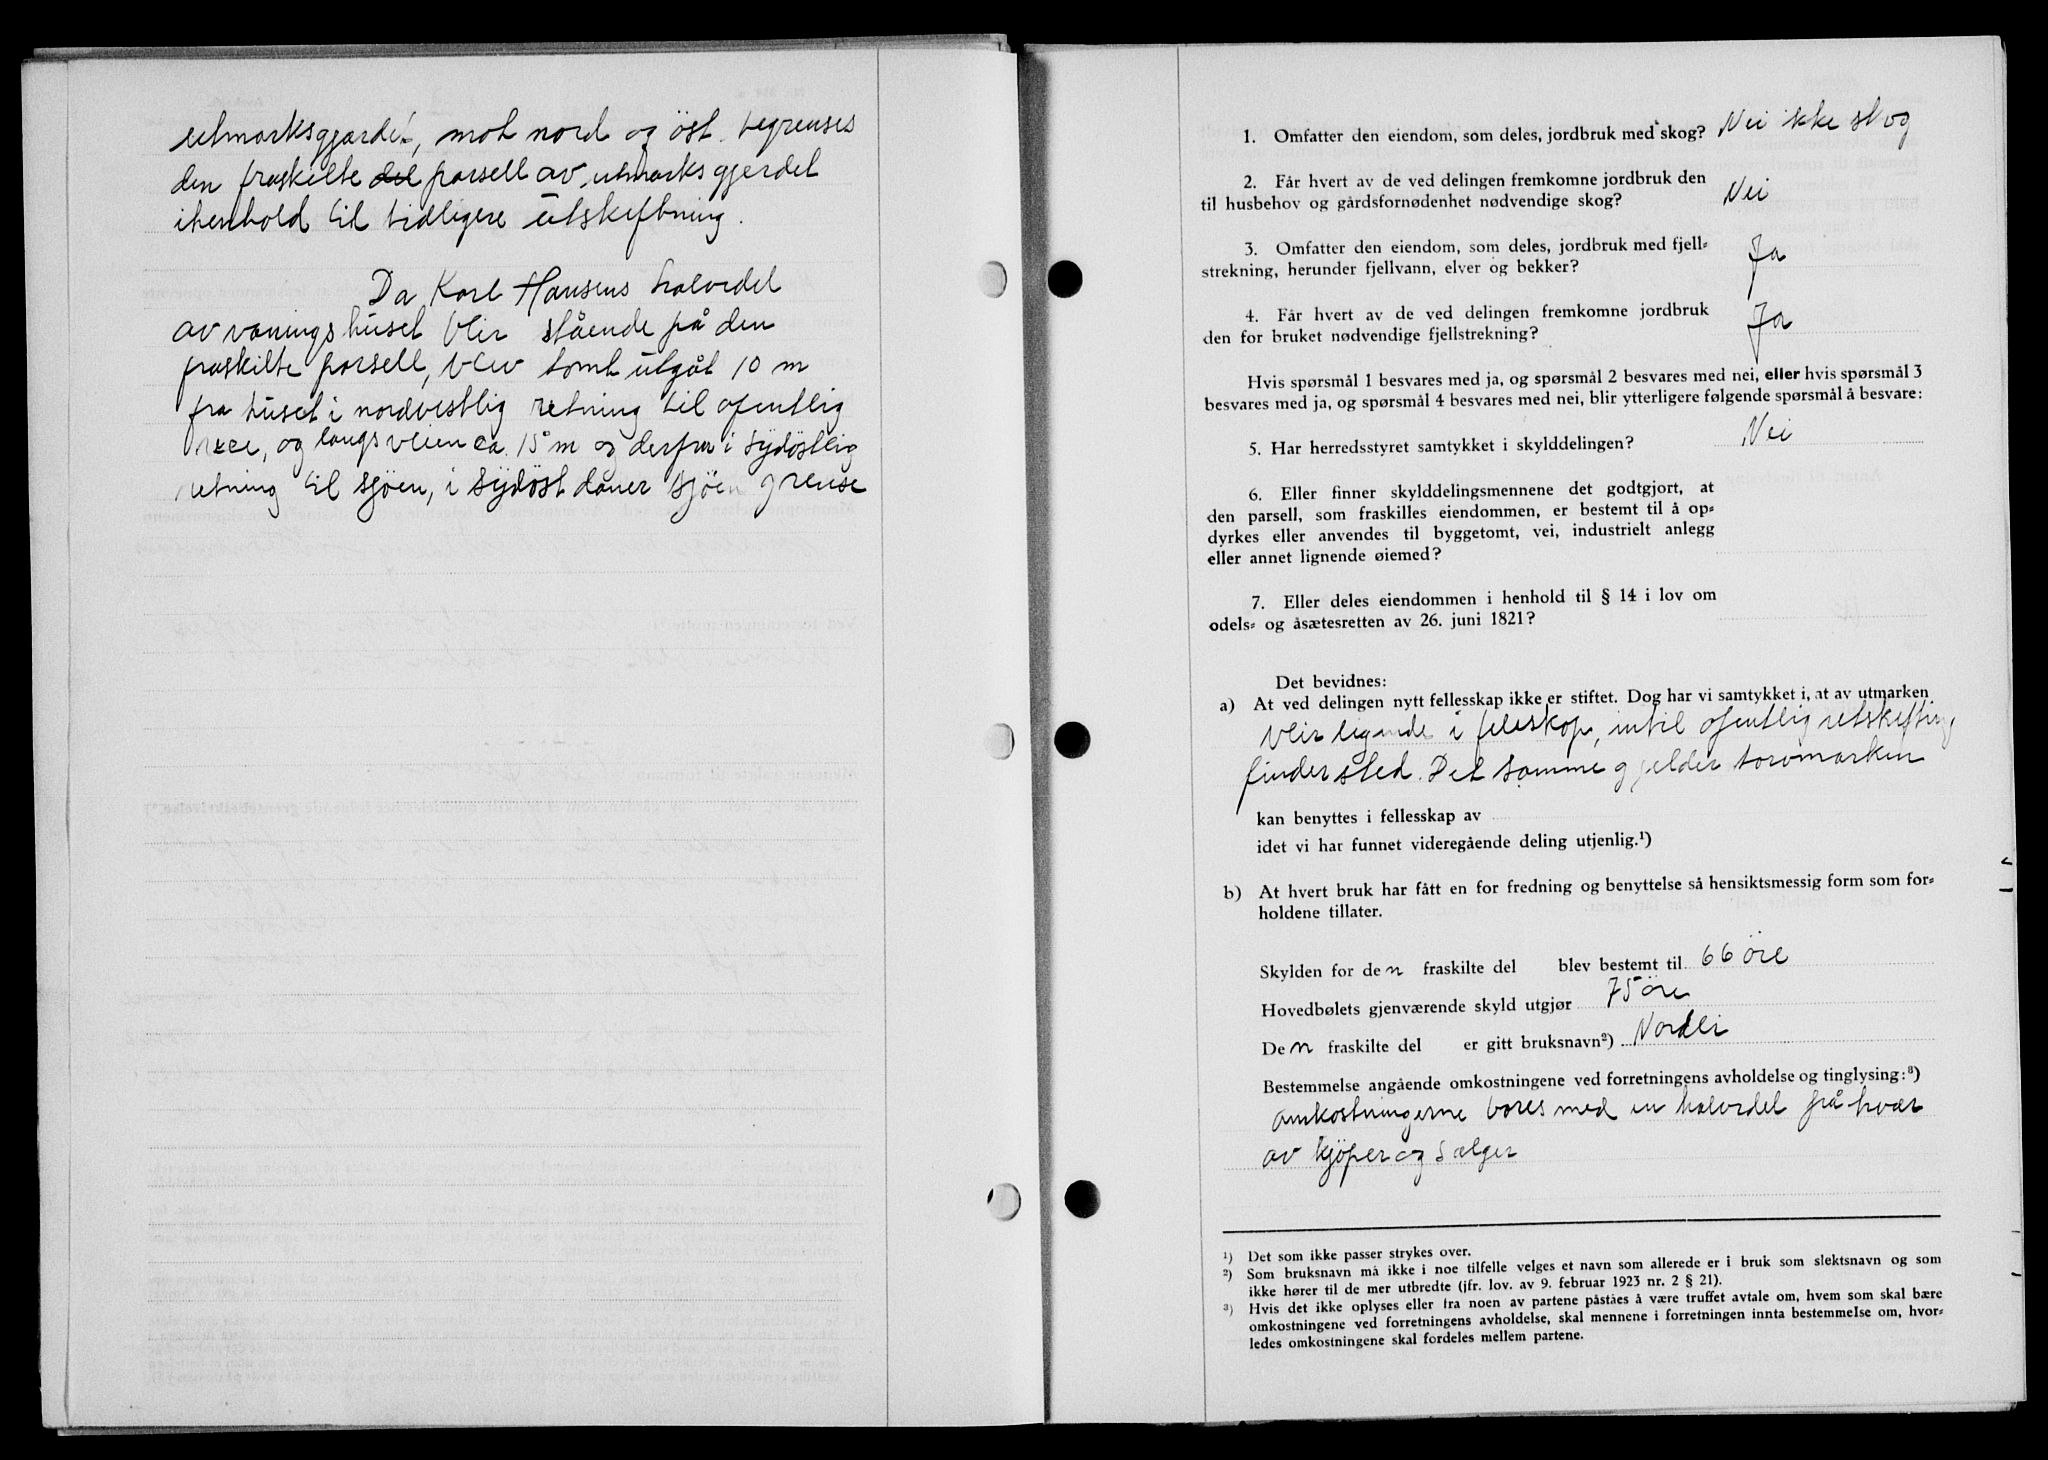 utmarksgjærdet, mot nord og öst begrenses
den fraskilte del parsell av utmarksgjerdet
ihenhold til tidligere utskiftning.
Da Karl Hansens halvdel
av våningshuset blir stående på den
fraskilte parsell, blev tomt utgåt 10 m
fra huset i nordvestlig retning til ofentlig
veie, og langs veien ca. 15 m og derfra i sydöstlig
retning til sjöen, i sydöst daner sjöen grense
1. Omfatter den eiendom, som deles, jordbruk med skog? Nei ikke skog
2. Får hvert av de ved delingen fremkomne jordbruk den
til husbehov og gårdsfornødenhet nødvendige skog? Nei
3. Omfatter den eiendom, som deles, jordbruk med fjell-
strekning, herunder fjellvann, elver og bekker? Ja
4. Får hvert av de ved delingen fremkomne jordbruk
den for bruket nødvendige fjellstrekning? Ja
Hvis spørsmål 1 besvares med ja, og spørsmål 2 besvares med nei, eller hvis spørsmål 3
besvares med ja, og spørsmål 4 besvares med nei, blir ytterligere følgende spørsmål å besvare:
5. Har herredsstyret samtykket i skylddelingen? Nei
6. Eller finner skylddelingsmennene det godtgjort, at
den parsell, som fraskilles eiendommen, er bestemt til å op-
dyrkes eller anvendes til byggetomt, vei, industrielt anlegg
eller annet lignende øiemed?
7. Eller deles eiendommen i henhold til § 14 i lov om
odels- og åsætesretten av 26. juni 1821?
Det bevidnes:
a) At ved delingen nytt fellesskap ikke er stiftet. Dog har vi samtykket i, at av utmarken
blir ligende i feleskap, intil ofentlig utskifting
finder sted. Det samme gjelder torvmarken
kan benyttes i fellesskap av
idet vi har funnet videregående deling utjenlig.¹)
b) At hvert bruk har fått en for fredning og benyttelse så hensiktsmessig form som for-
holdene tillater.
Skylden for den fraskilte del blev bestemt til 66 öre
Hovedbølets gjenværende skyld utgjør 75 öre
Den fraskilte del er gitt bruksnavn²) Nordli
Bestemmelse angående omkostningene ved forretningens avholdelse og tinglysing:³)
Omkostningerne bæres med en halvdel på hver
av kjöper og sælger
¹) Det som ikke passer strykes over.
²) Som bruksnavn må ikke i noe tilfelle velges et navn som allerede er i bruk som slektsnavn og som
ikke hører til de mer utbredte (jfr. lov. av 9. februar 1923 nr. 2 § 21).
³) Hvis det ikke oplyses eller fra noen av partene påståes å være truffet avtale om, hvem som skal bære
omkostningene ved forretningens avholdelse, skal mennene i forretningen innta bestemmelse om, hvor-
ledes omkostningene skal fordeles mellem partene.